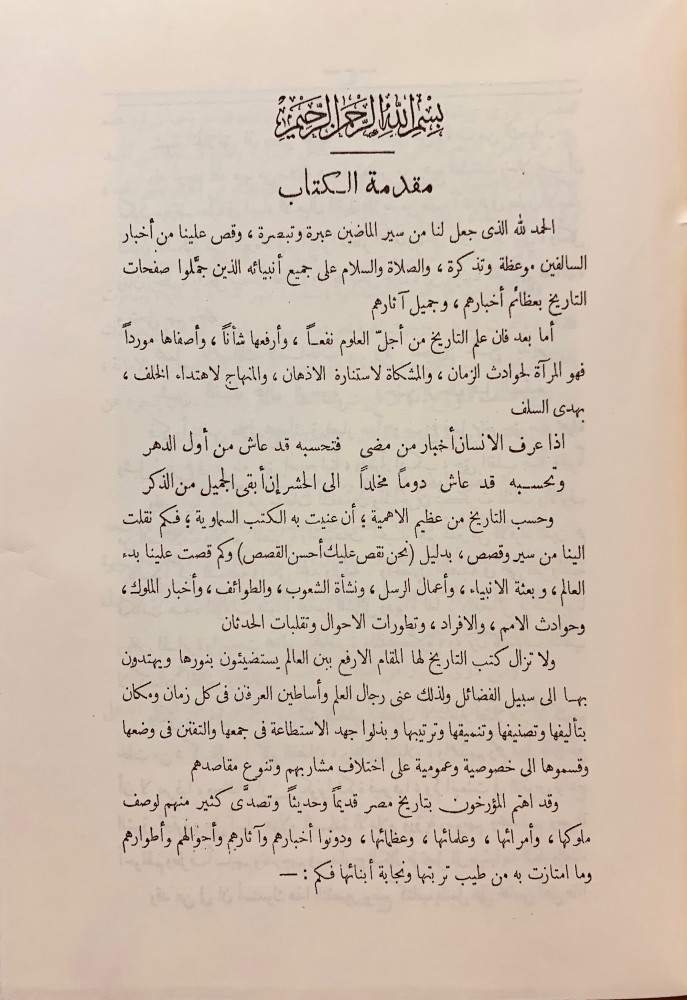 بِسْمِ اللهِ الرَّحْمٰنِ الرَّحِيْمِ
مقدمة الكتاب
الحمد لله الذى جعل لنا من سير الماضين عبرة وتبصرة ، وقص علينا من أخبار
السالفين موعظة وتذكرة ، والصلاة والسلام على جميع أنبيائه الذين جمَّلوا صفحات
التاريخ بعظائم أخبارهم ، وجميل آثارهم
أما بعد فان علم التاريخ من أجلّ العلوم نفعاً ، وأرفعها شأناً ، وأصفاها مورداً
فهو المرآة لحوادث الزمان ، والمشكاة لاستنارة الاذهان ، والمنهاج لاهتداء الخلف ،
بهدى السلف
اذا عرف الانسان أخبار من مضى فتحسبه قد عاش من أول الدهر
وتحسبه قد عاش دوماً مخلداً الى الحشر إن أبقى الجميل من الذكر
وحسب التاريخ من عظيم الاهمية ؛ أن عنيت به الكتب السماوية ؛ فكم نقلت
الينا من سير وقصص ، بدليل (نحن نقص عليك أحسن القصص) وكم قصت علينا بدء
العالم ، وبعثة الانبياء ، وأعمال الرسل ، ونشأة الشعوب ، والطوائف ، وأخبار الملوك ،
وحوادث الامم ، والافراد ، وتطورات الاحوال وتقلبات الحدثان
ولا تزال كتب التاريخ لها المقام الارفع بين العالم يستضيئون بنورها ويهتدون
بها الى سبيل الفضائل ولذلك عنى رجال العلم وأساطين العرفان فى كل زمان ومكان
بتأليفها وتصنيفها وتنميقها وترتيبها وبذلوا جهد الاستطاعة فى جمعها والتفنن فى وضعها
وقسموها الى خصوصية وعمومية على اختلاف مشاربهم وتنوع مقاصدهم
وقد اهتم المؤرخون بتاريخ مصر قديماً وحديثاً وتصدَّى كثير منهم لوصف
ملوكها ، وأمرائها ، وعلمائها ، وعظمائها ، ودونوا أخبارهم وآثارهم وأحوالهم وأطوارهم
وما امتازت به من طيب تربتها ونجابة أبنائها فكم : —